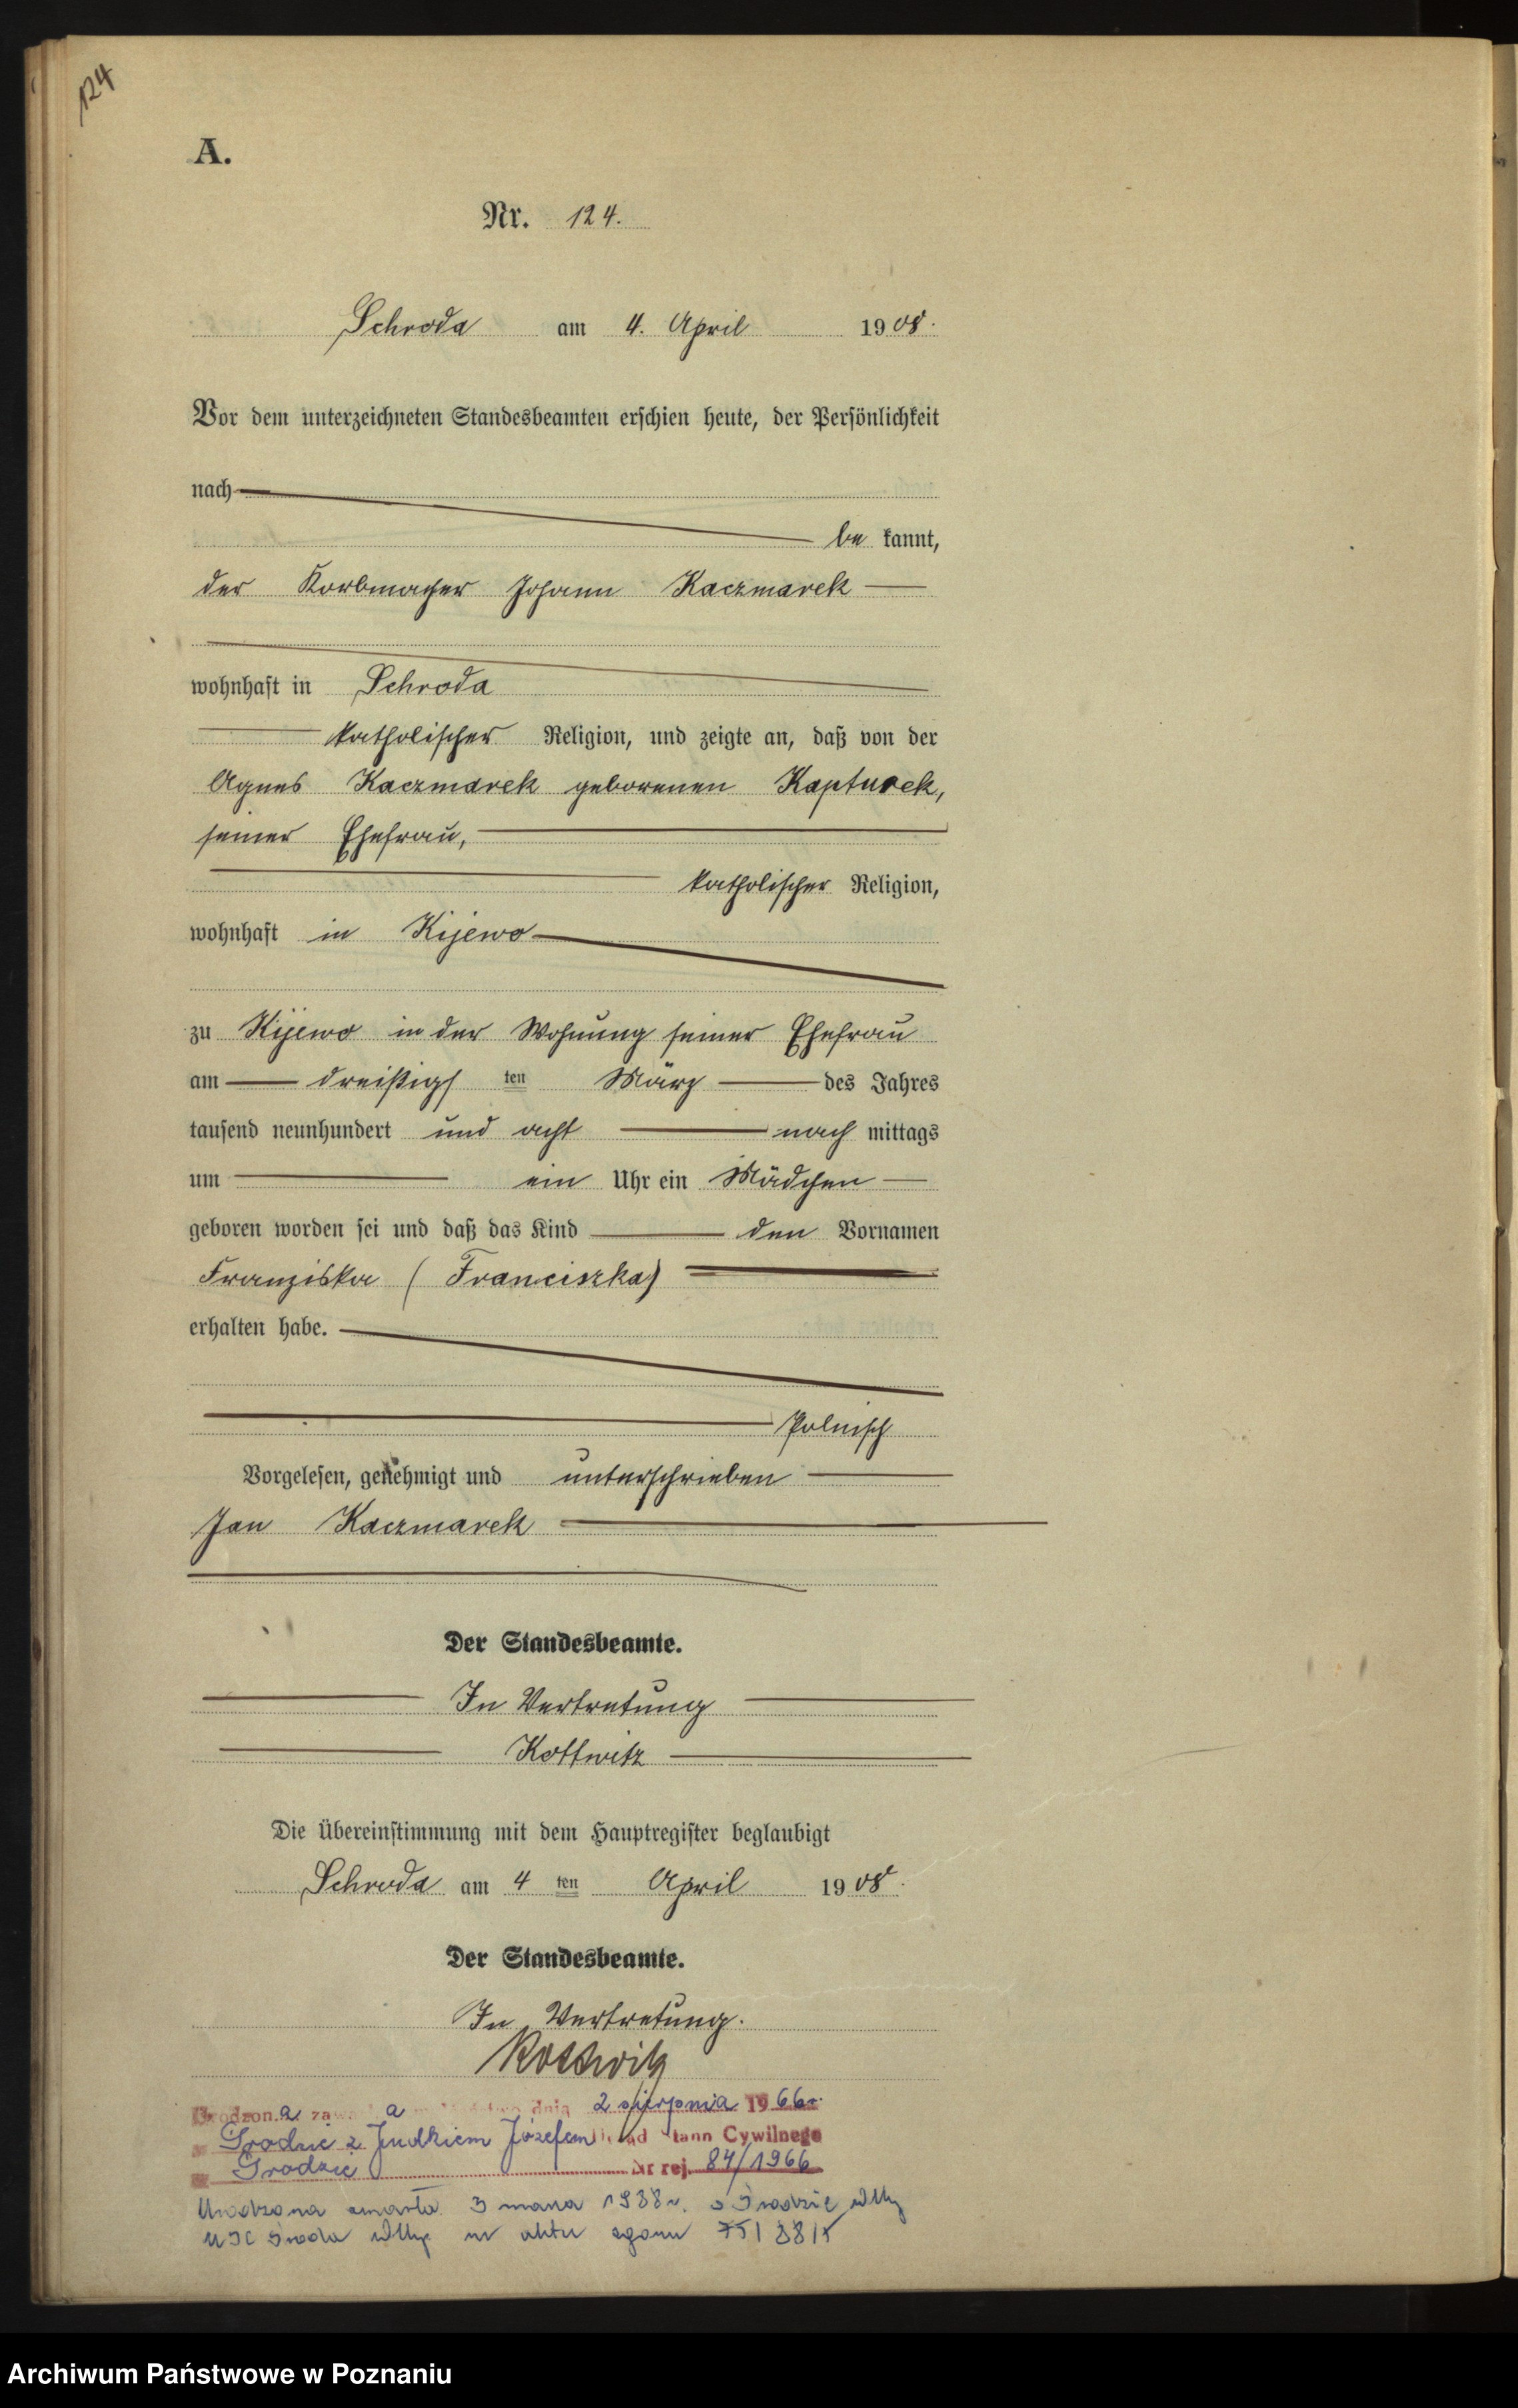 124
A.
Nr. 124.
Schroda am 4. April 1908.
Vor dem unterzeichneten Standesbeamten erschien heute, der Persönlichkeit
nach
be kannt,
der Korbmacher Johann Kaczmarek
wohnhaft in Schroda
katholischer Religion, und zeigte an, daß von der
Agnes Kaczmarek geborenen Kapturek,
seiner Ehefrau,
katholischer Religion,
wohnhaft in Kijewo
zu Kijewo in der Wohnung seiner Ehefrau
am dreißigs ten März des Jahres
tausend neunhundert und acht nach mittags
um ein Uhr ein Mädchen
geboren worden sei und daß das Kind den Vornamen
Franziska (Franciszka)
erhalten habe.
Polnisch
Vorgelesen, genehmigt und unterschrieben
Jan Kaczmarek
Der Standesbeamte.
In Vertretung
Kottwitz
Die Übereinstimmung mit dem Hauptregister beglaubigt
Schroda am 4 ten April 1908.
Der Standesbeamte.
In Vertretung.
Kottwitz
a dnia 2 sierpnia 1966r.
Środzie z Judkiem Józefem Stanu Cywilnego
Środzie Nr rej. 84/1966
Urodzona zmarła 3 marca 1988r. w Środzie Wlkp
USC Środa Wlkp nr aktu zgonu
Archiwum Państwowe w Poznaniu